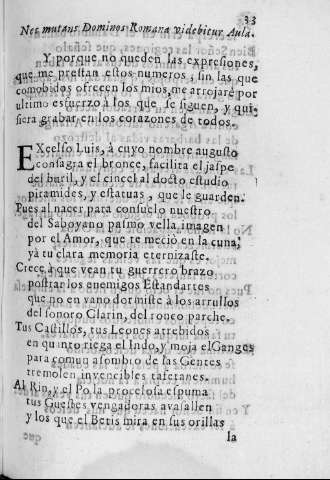 33
Nec mutans Dominos Romana videbitur Aula.
Y porque no queden las expresiones,
que me prestan estos numeros, sin las que
comobidos ofrecen los mios, me arrojarè por
ultimo esfuerzo à los que se siguen, y qui-
siera grabar en los corazones de todos.
EXcelso Luis, à cuyo nombre augusto
consagra el bronce, facilita el jaspe
del buril, y el cincel al docto estudio
piramides, y estatuas, que le guarden.
Pues al nacer para consuelo nuestro
del Saboyano pasmo vella imagen
por el Amor, que te meciò en la cuna,
yà tu clara memoria eternizaste.
Crece à que vean tu guerrero brazo
postrar los enemigos Estandartes
que no en vano dormiste à los arrullos
del sonoro Clarin, del ronco parche.
Tus Castillos, tus Leones atrebidos
en quinto riega el Indo, y moja el Ganges
para comun asombro de las Gentes
tremolen invencibles tafetanes.
Al Rin, y el Po la procelosa espuma
tus Guestes vengadoras avasallen
y los que el Betis mira en sus orillas
la